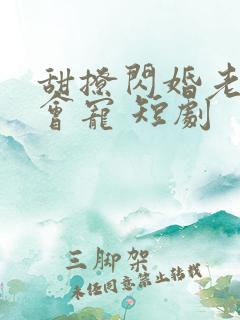 甜撩閃婚老
會寵 短劇
三脚架
未经同意禁止转载